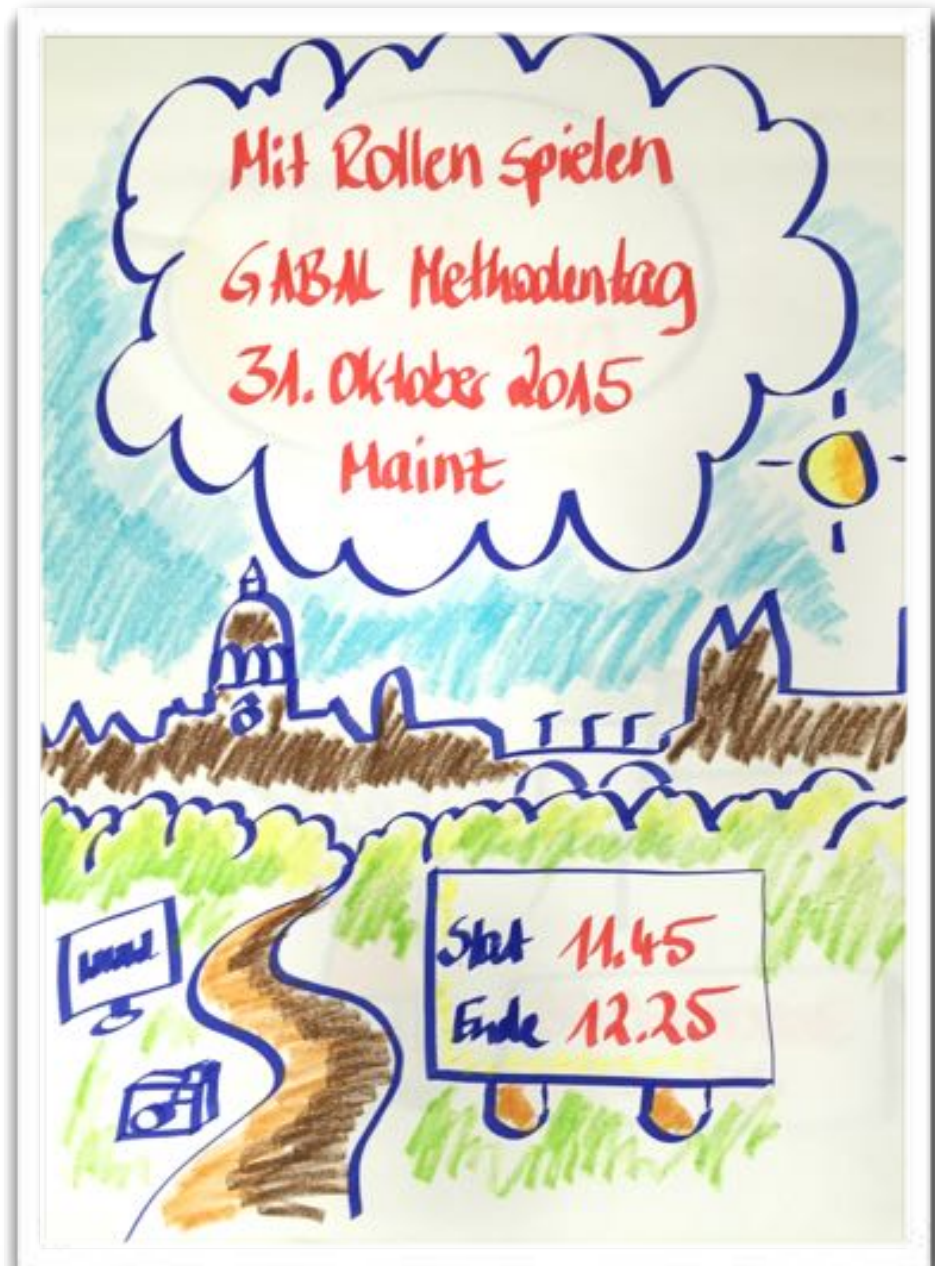 Mit Rollen spielen
GABAL Methodentag
31. Oktober 2015
Mainz
Start 11.45
Ende 12.25